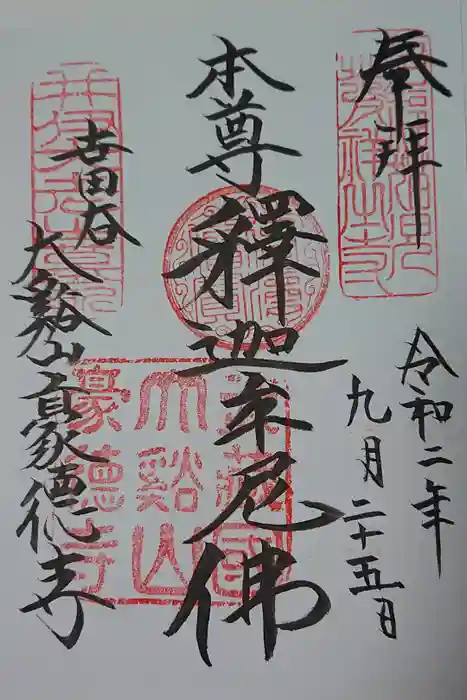 奉拝
令和二年
九月二十五日
本尊釋迦牟尼佛
世田谷
大谿山豪徳寺
武蔵國
大谿山
豪德寺